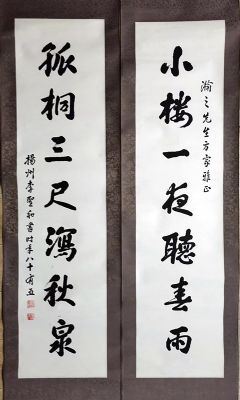 瀚之先生方家雅正
小樓一夜聽春雨
孤桐三尺瀉秋泉
揚州李聖和書時年八十有五